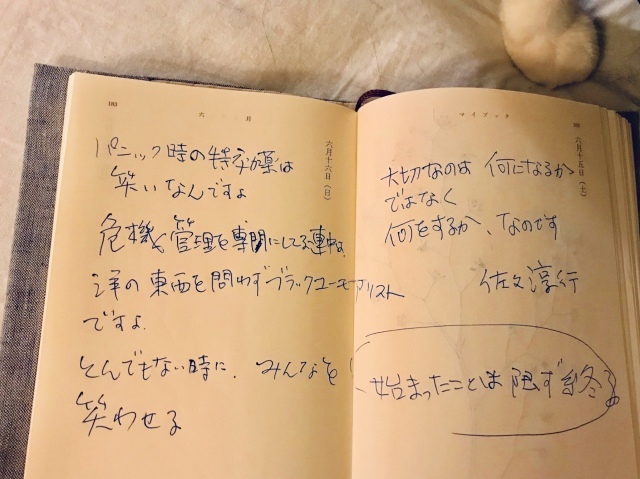 マイブック
六月十五日(土)
大切なのは 何になるか
ではなく
何をするか、なのです
佐々淳行
始まったことは 限ず終る
六月
六月十六日(日)
パニック時の特効薬は
笑いなんですよ
危機管理を専門にしてる連中は、
洋の東西を問わずブラックユーモアリスト
ですよ.
とんでもない時に、みんなを
笑わせる